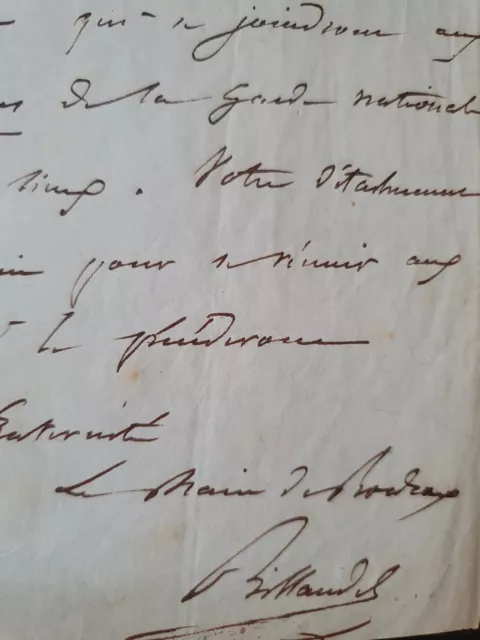 qui se joindront aux
de la Garde nationale
lieux. Votre Détachement
pour se réunir aux
le précéderont
Fraternité
Le Maire de Bordeaux
Billaudel